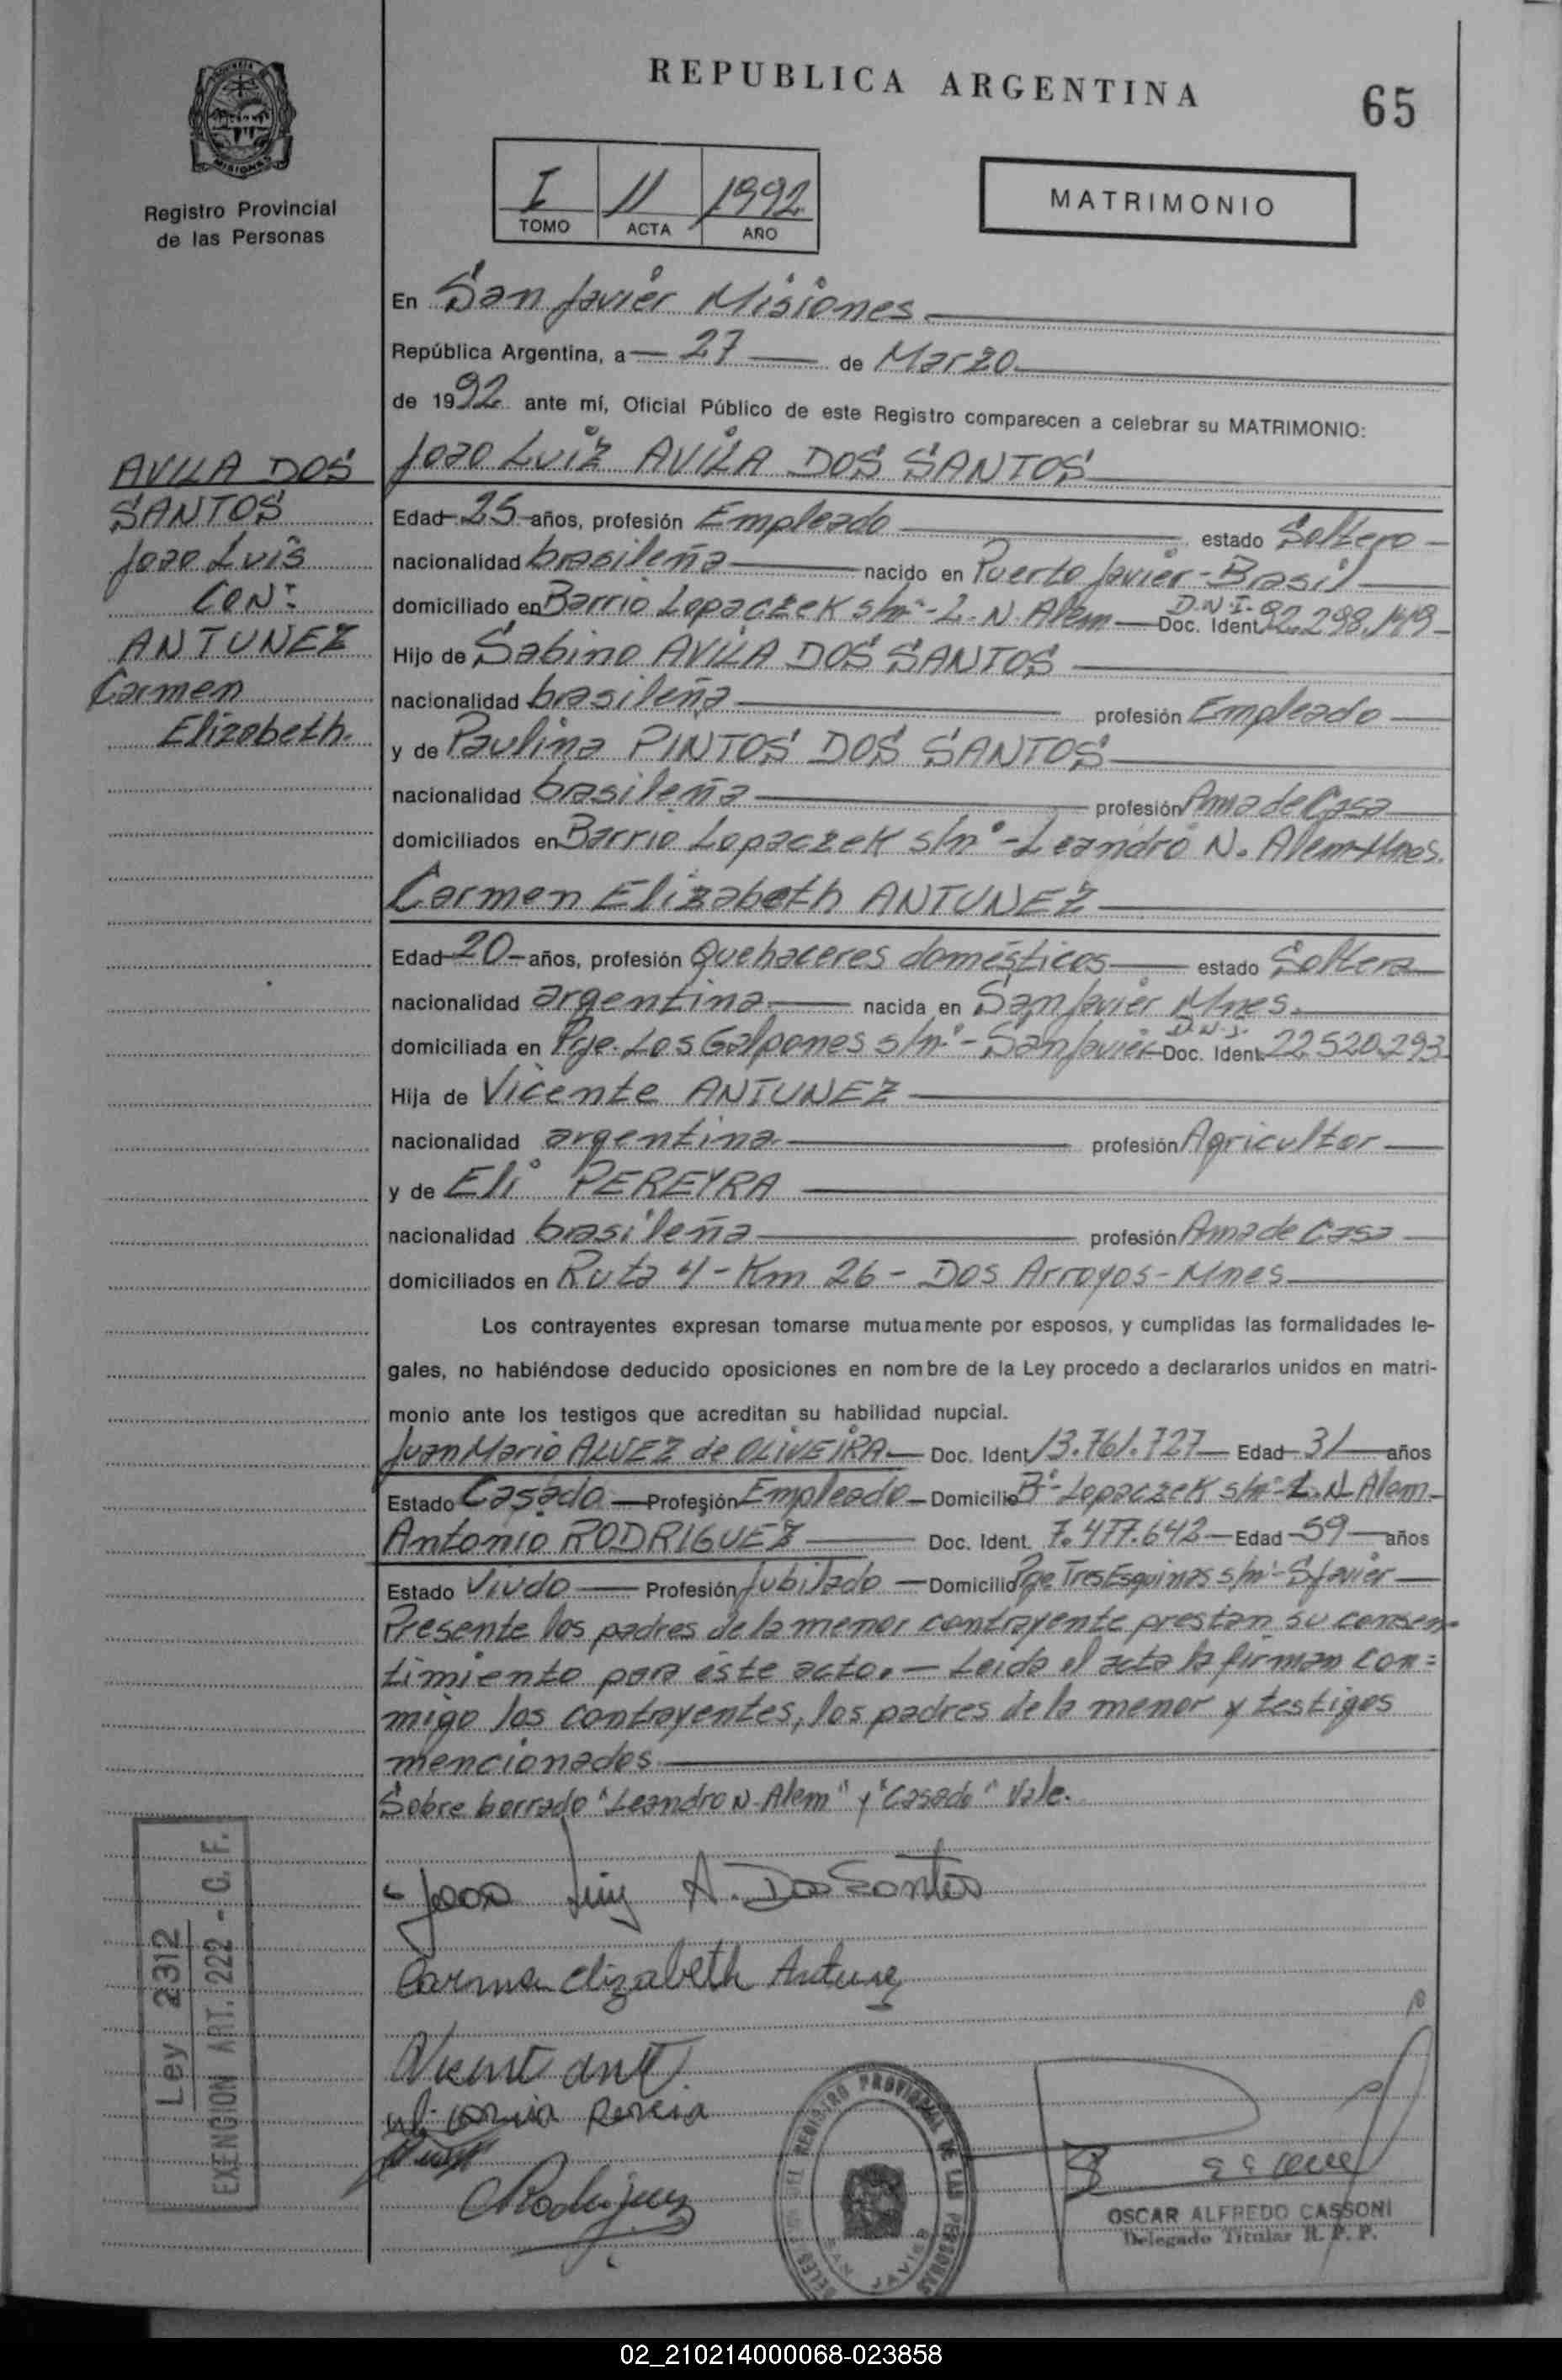 REPUBLICA ARGENTINA
65
MISIONES
Registro Provincial
de las Personas
I 11 1992
TOMO ACTA AÑO
MATRIMONIO
En San Javier Misiones
República Argentina, a 27 de Marzo
de 1992 ante mí, Oficial Público de este Registro comparecen a celebrar su MATRIMONIO:
AVILA DOS
SANTOS
Joao Luis
CON:
ANTUNEZ
Carmen
Elizabeth.
Joao Luiz AVILA DOS SANTOS
Edad 25 años, profesión Empleado estado Soltero
nacionalidad brasileña nacido en Puerto Javier - Brasil
domiciliado en Barrio Lopaczek s/nº - L. N. Alem D.N.I. Doc. Ident. 92.298.149
Hijo de Sabino AVILA DOS SANTOS
nacionalidad brasileña profesión Empleado
y de Paulina PINTOS DOS SANTOS
nacionalidad brasileña profesión Ama de Casa
domiciliados en Barrio Lopaczek s/nº - Leandro N. Alem - Mnes.
Carmen Elizabeth ANTUNEZ
Edad 20 años, profesión Quehaceres domésticos estado Soltera
nacionalidad argentina nacida en San Javier Mnes.
domiciliada en Pje. Los Galpones s/nº - San Javier D.N.I. Doc. Ident. 22.520.293
Hija de Vicente ANTUNEZ
nacionalidad argentina profesión Agricultor
y de Eli PEREYRA
nacionalidad brasileña profesión Ama de Casa
domiciliados en Ruta 4 - Km 26 - Dos Arroyos - Mnes
Los contrayentes expresan tomarse mutuamente por esposos, y cumplidas las formalidades le-
gales, no habiéndose deducido oposiciones en nombre de la Ley procedo a declararlos unidos en matri-
monio ante los testigos que acreditan su habilidad nupcial.
Juan Mario ALVEZ de OLIVEIRA Doc. Ident. 13.761.727 Edad 31 años
Estado Casado Profesión Empleado Domicilio Bº Lopaczek s/nº - L. N. Alem
Antonio RODRIGUEZ Doc. Ident. 7.477.642 Edad 59 años
Estado Viudo Profesión Jubilado Domicilio Pje Tres Esquinas s/nº - S Javier
Presente los padres de la menor contrayente prestan su consen-
timiento para éste acto. - Leida el acta la firman con=
migo los contrayentes, los padres de la menor y testigos
mencionados
Sobre borrado "Leandro N. Alem" y "Casado" Vale.
Joao Luiz A. Dos Santos
Carmen Elizabeth Antunez
Rodriguez
Ley 2312
EXENCION ART. 222 - C. F.
REGISTRO PROVINCIAL DE LAS PERSONAS
SAN JAVIER
OSCAR ALFREDO CASSONI
Delegado Titular R. P. P.
02_210214000068-023858